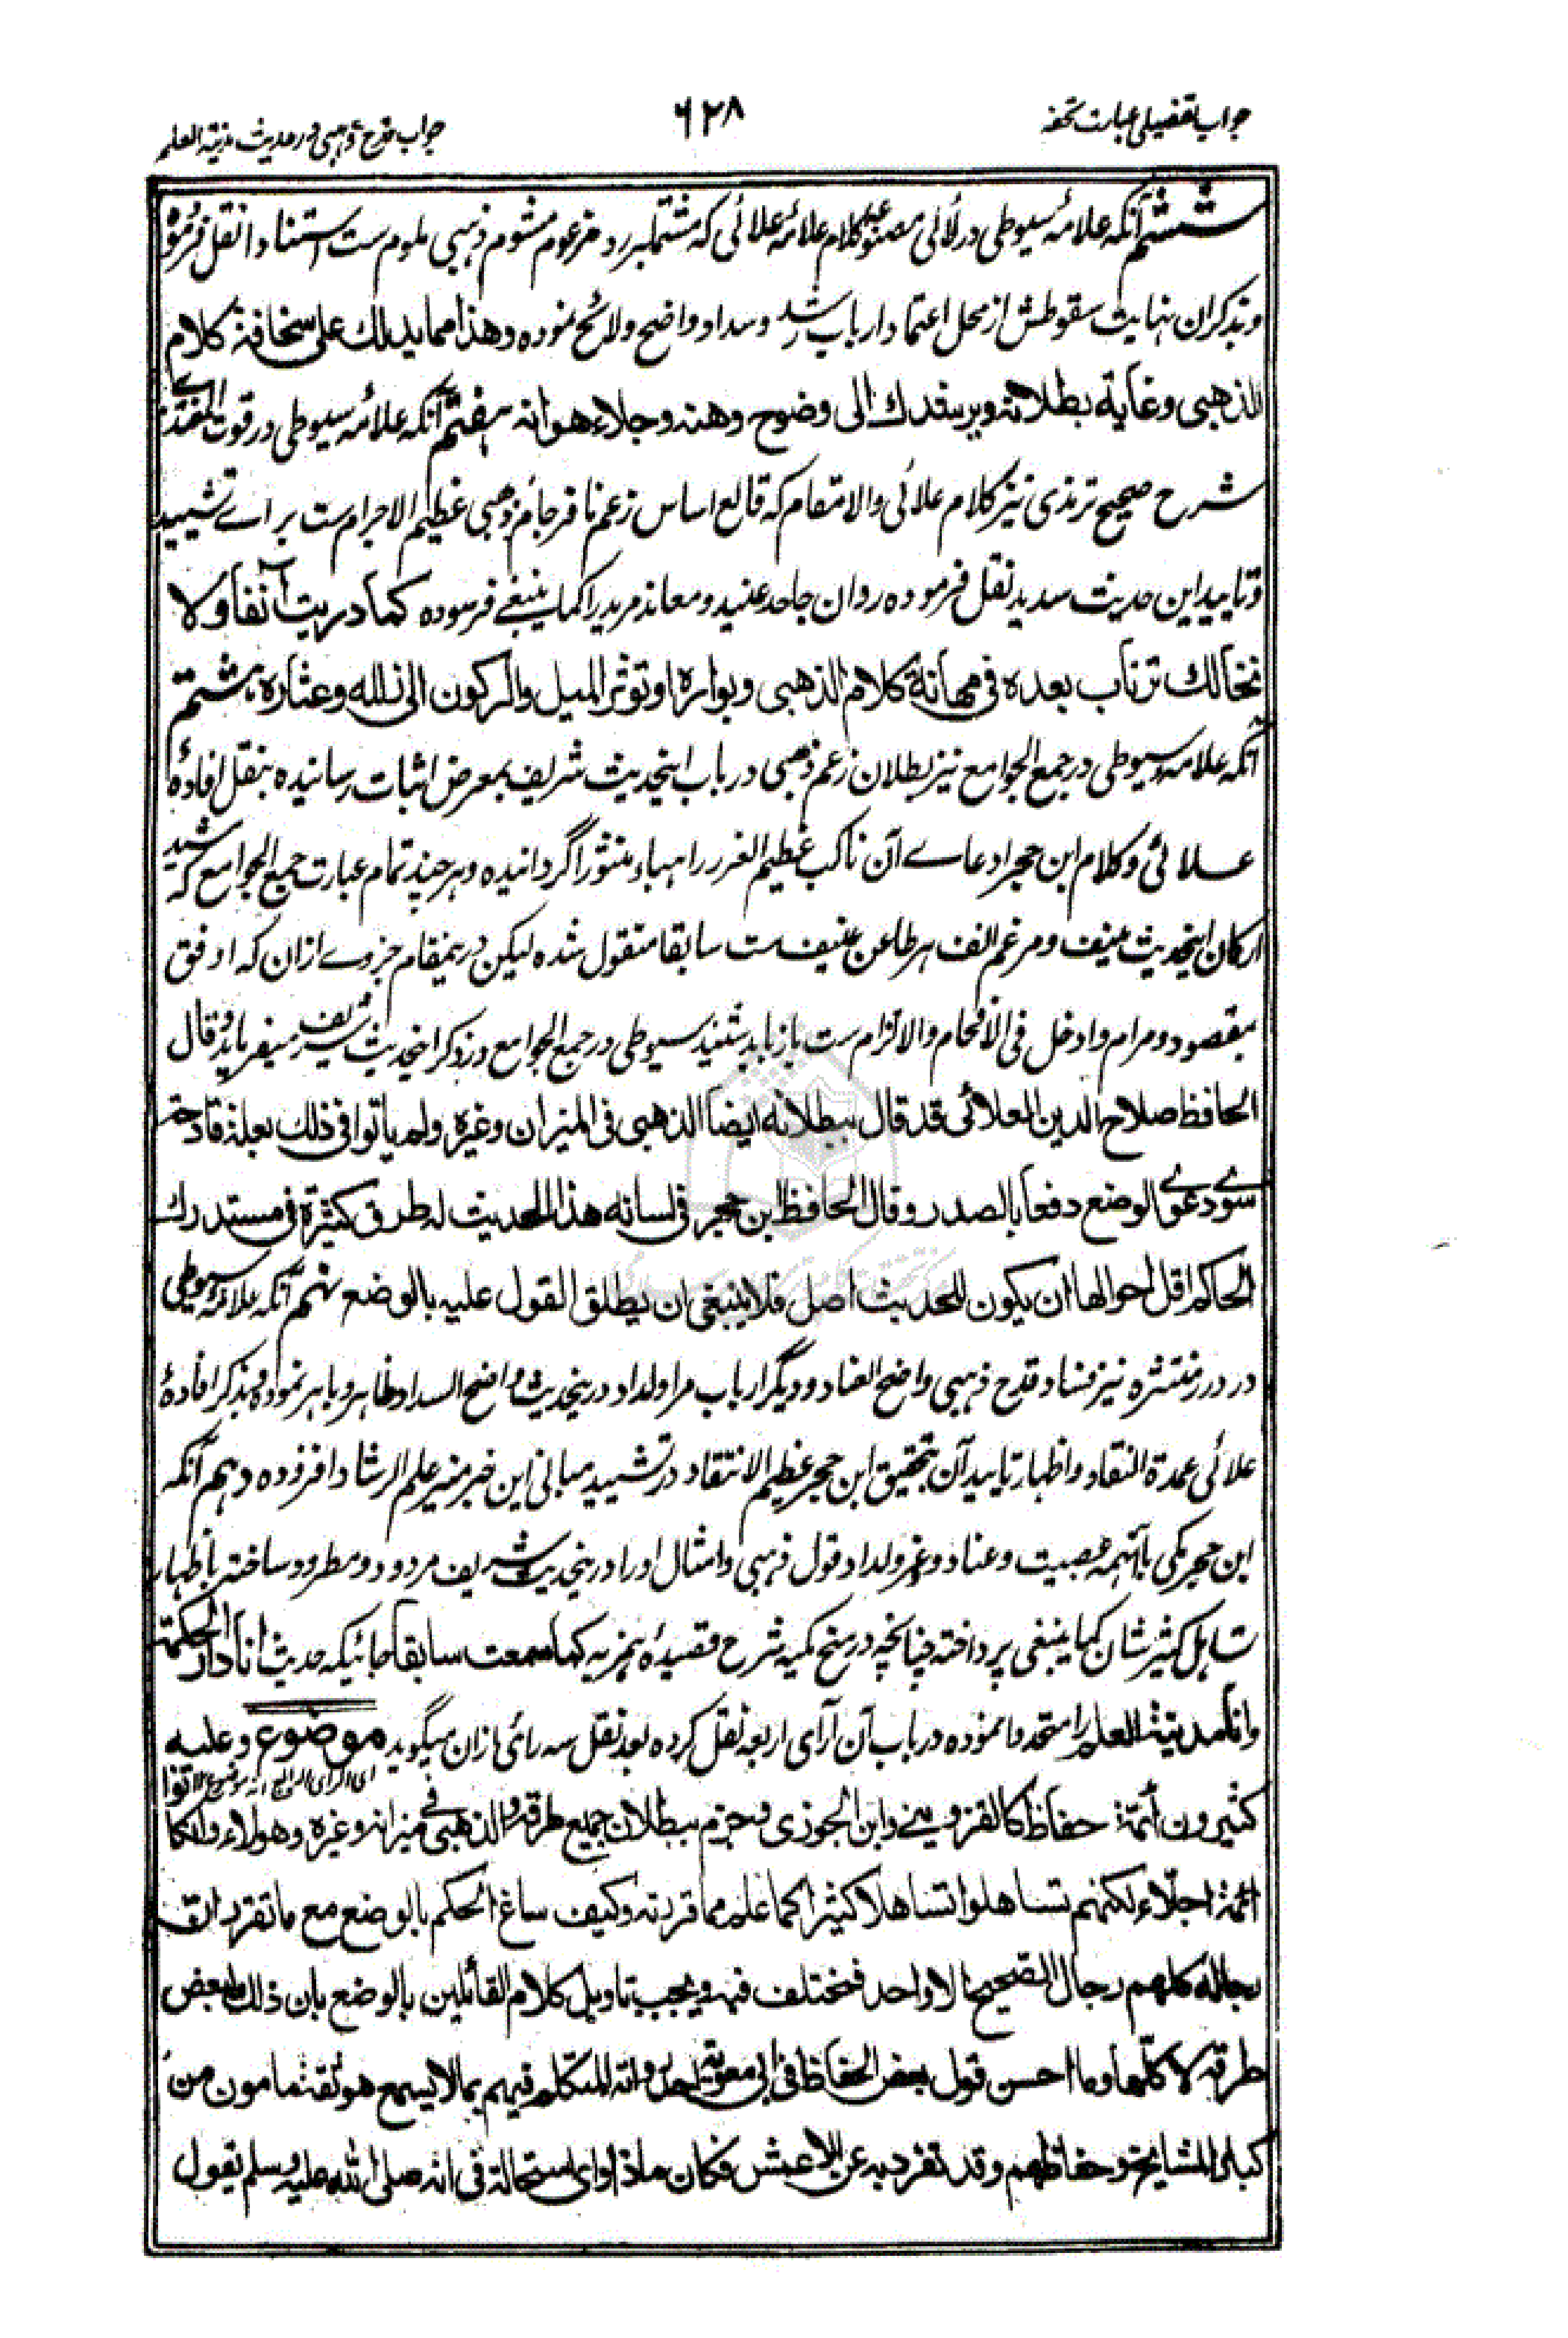 جواب تفصیلی عبارت تحفه
۶۲۸
جواب قدح ذهبی در حدیث مدینة العلم
ششم آنکه علامهٔ سیوطی در لآلی مصنوعه کلام علامه علائی که مشتملبر رد مزعوم مشوم ذهبی ملوم ست استنادا نقل فرموده
وبذکر ان نهایت سقوطش از محل اعتماد ارباب رشد وسداد واضح ولائح نموده وهذا مما یدلك علی سخافة کلام
الذهبی وغایة بطلانه ویرشدك الی وضوح وهنه وجلاء هوانه هفتم آنکه علامه سیوطی در قوت المغتذی
شرح صحیح ترمذی نیز کلام علائی والامقام که قالع اساس زعم نافرجام ذهبی عظیم الاجرام ست برای تشیید
وتایید این حدیث سدید نقل فرموده روان جاحد عنید ومعاند مرید را کما ینبغی فرسوده کما دریت آنفا ولا
نخالك ترتاب بعده فی مهانة کلام الذهبی وبواره او تؤثر المیل والرکون الی زلله وعثاره هشتم
آنکه علامه سیوطی در جمع الجوامع نیز بطلان زعم ذهبی در باب اینحدیث شریف بمعرض اثبات رسانیده بنقل افادهٔ
علائی وکلام ابن حجر ادعای آن ناکب عظیم الغرر را هباء منثورا گردانیده وهر چند تمام عبارت جمع الجوامع که مشید
ارکان اینحدیث منیف ومرغم انف هر طاعن عنیف ست سابقا منقول شده لیکن درینمقام جزوے ازان که اوفق
بمقصود ومرام وادخل فی الافحام والالزام ست باز باید شنید سیوطی در جمع الجوامع در ذکر اینحدیث شریف میفرماید وقال
الحافظ صلاح الدین العلائی قد قال ببطلانه ایضا الذهبی فی المیزان وغیره ولم یاتوا فی ذلك بعلة قادحة
سوی دعوی الوضع دفعا بالصدر وقال الحافظ ابن حجر فی لسانه هذا الحدیث له طرق کثیرة فی مستدرك
الحاکم اقل احوالها ان یکون للحدیث اصل فلا ینبغی ان یطلق القول علیه بالوضع نهم آنکه علامه سیوطی
در درر منتثره نیز فساد قدح ذهبی واضح العناد ودیگر ارباب مرا ولداد درینحدیث واضح السداد ظاهر وباهر نموده وبذکر افادهٔ
علائی عمدة النقاد واظهار تایید آن بتحقیق ابن حجر عظیم الانتقاد در تشیید مبانی این خبر منیر علم الرشاد افزوده دهم آنکه
ابن حجر مکی باآنهمه عصبیت وعناد ولداد قول ذهبی وامثال او را درینحدیث شریف مردود ومطرود ساخته باظهار
تساهل کثیر شان کما ینبغی پرداخته چنانچه در منح مکیه شرح قصیدهٔ همزیه کما سمعت سابقا جائیکه حدیث انا دار الحکمة
وانا مدینة العلم را متحد وانموده در باب آن آرای اربعه نقل کرده بعد نقل سه رائی ازان میگوید موضوع وعلیه
ای الرای الرابع انه موضوع
کثیرون أئمة حفاظ کالقزوینے وابن الجوزی وجزم ببطلان جمیع طرقه والذهبی فی میزانه وغیره وهولاء وان کانوا
ائمة اجلاء لکنهم تساهلوا تساهلا کثیرا کما علم مما قررته وکیف ساغ الحکم بالوضع مع ما تقرر ان
رجاله کلهم رجال الصحیح الا واحد فمختلف فیه ویجب تاویل کلام القائلین بالوضع بان ذلك لبعض
طرقه لا کلها وما احسن قول بعض الحفاظ فی ابی معویة احد رواته المتکلم فیهم بما لا یسمع هو ثقة مامون من
کبار المشایخ وحفاظهم وقد تفرد به عن الاعمش فکان ماذا وای استحالة فی انه صلی الله علیه وسلم یقول